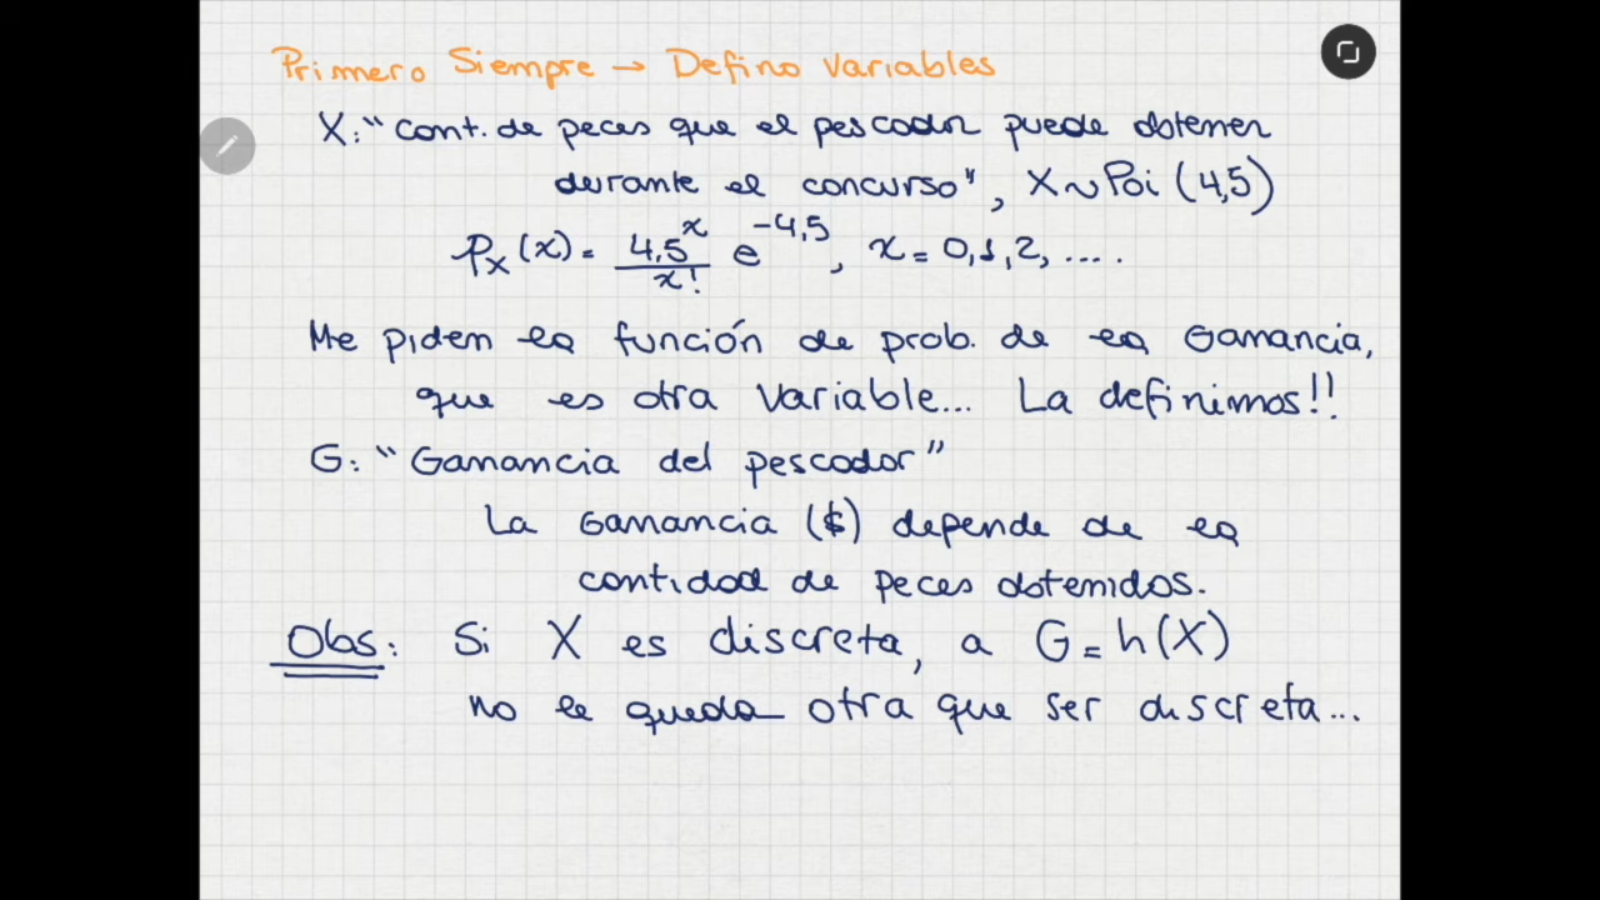 Primero Siempre → Defino Variables
X: "cant. de peces que el pescador puede obtener
durante el concurso", X ~ Poi (4,5)
p_X(x) = 4,5^x / x! e^-4,5, x = 0,1,2, ....
Me piden la función de prob. de la Ganancia,
que es otra Variable... La definimos!!
G: "Ganancia del pescador"
La Ganancia ($) depende de la
cantidad de peces obtenidos.
Obs: Si X es discreta, a G = h(X)
no le queda otra que ser discreta...